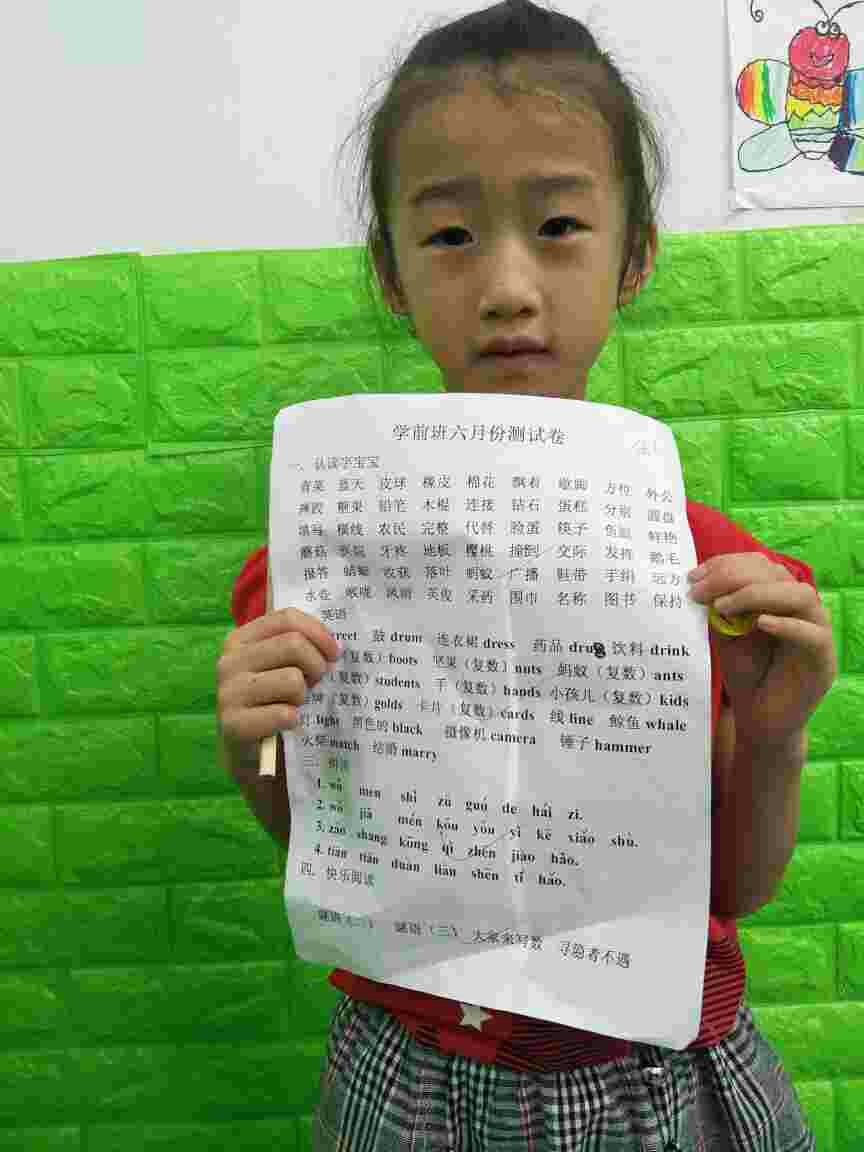 学前班六月份测试卷
一、认读字宝宝
青菜 蓝天 皮球 橡皮 棉花 飘着 歇脚 方位 外公
糖果 铅笔 木棍 连接 钻石 蛋糕 分别 圆盘
填写 横线 农民 完整 代替 脸蛋 筷子 鱼缸 鲜艳
蘑菇 牙疼 地板 樱桃 捡到 交际 发挥 鹅毛
报答 蜻蜓 收获 落叶 蚂蚁 广播 鞋带 手绢 远方
水壶 喉咙 英俊 采药 围巾 名称 图书 保持
英语
鼓 drum 连衣裙 dress 药品 drug 饮料 drink
(复数) boots 坚果 (复数) nuts 蚂蚁 (复数) ants
(复数) students 手 (复数) hands 小孩儿 (复数) kids
(复数) golds 卡片 (复数) cards 线 line 鲸鱼 whale
灯 light 黑色的 black 摄像机 camera 锤子 hammer
火柴 match 结婚 marry
三、拼读
1. wǒ men shì zǔ guó de hái zi.
2. wǒ jiā mén kǒu yǒu yì kē xiǎo shù.
3. zǎo shang kōng qì zhēn jiào hǎo.
4. tiān tiān duàn liàn shēn tǐ hǎo.
四、快乐阅读
谜语(二) 谜语(三) 大家来写数 寻隐者不遇